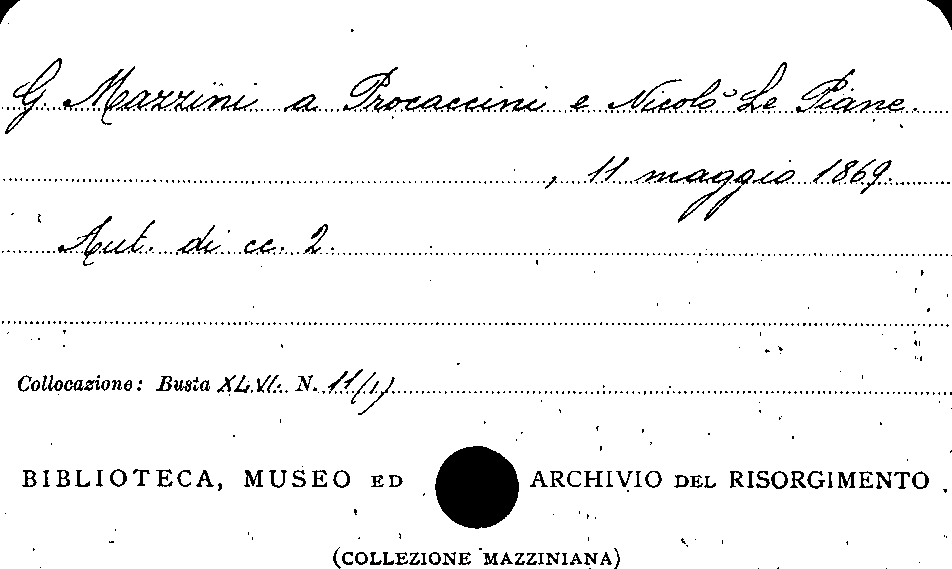 G. Mazzini a Procaccini e Nicolò Le Piane.
, 11 maggio 1869.
Aut. di cc. 2.
Collocazione: Busta XLVI. N. 11/1)
BIBLIOTECA, MUSEO ED ARCHIVIO DEL RISORGIMENTO
(COLLEZIONE MAZZINIANA)